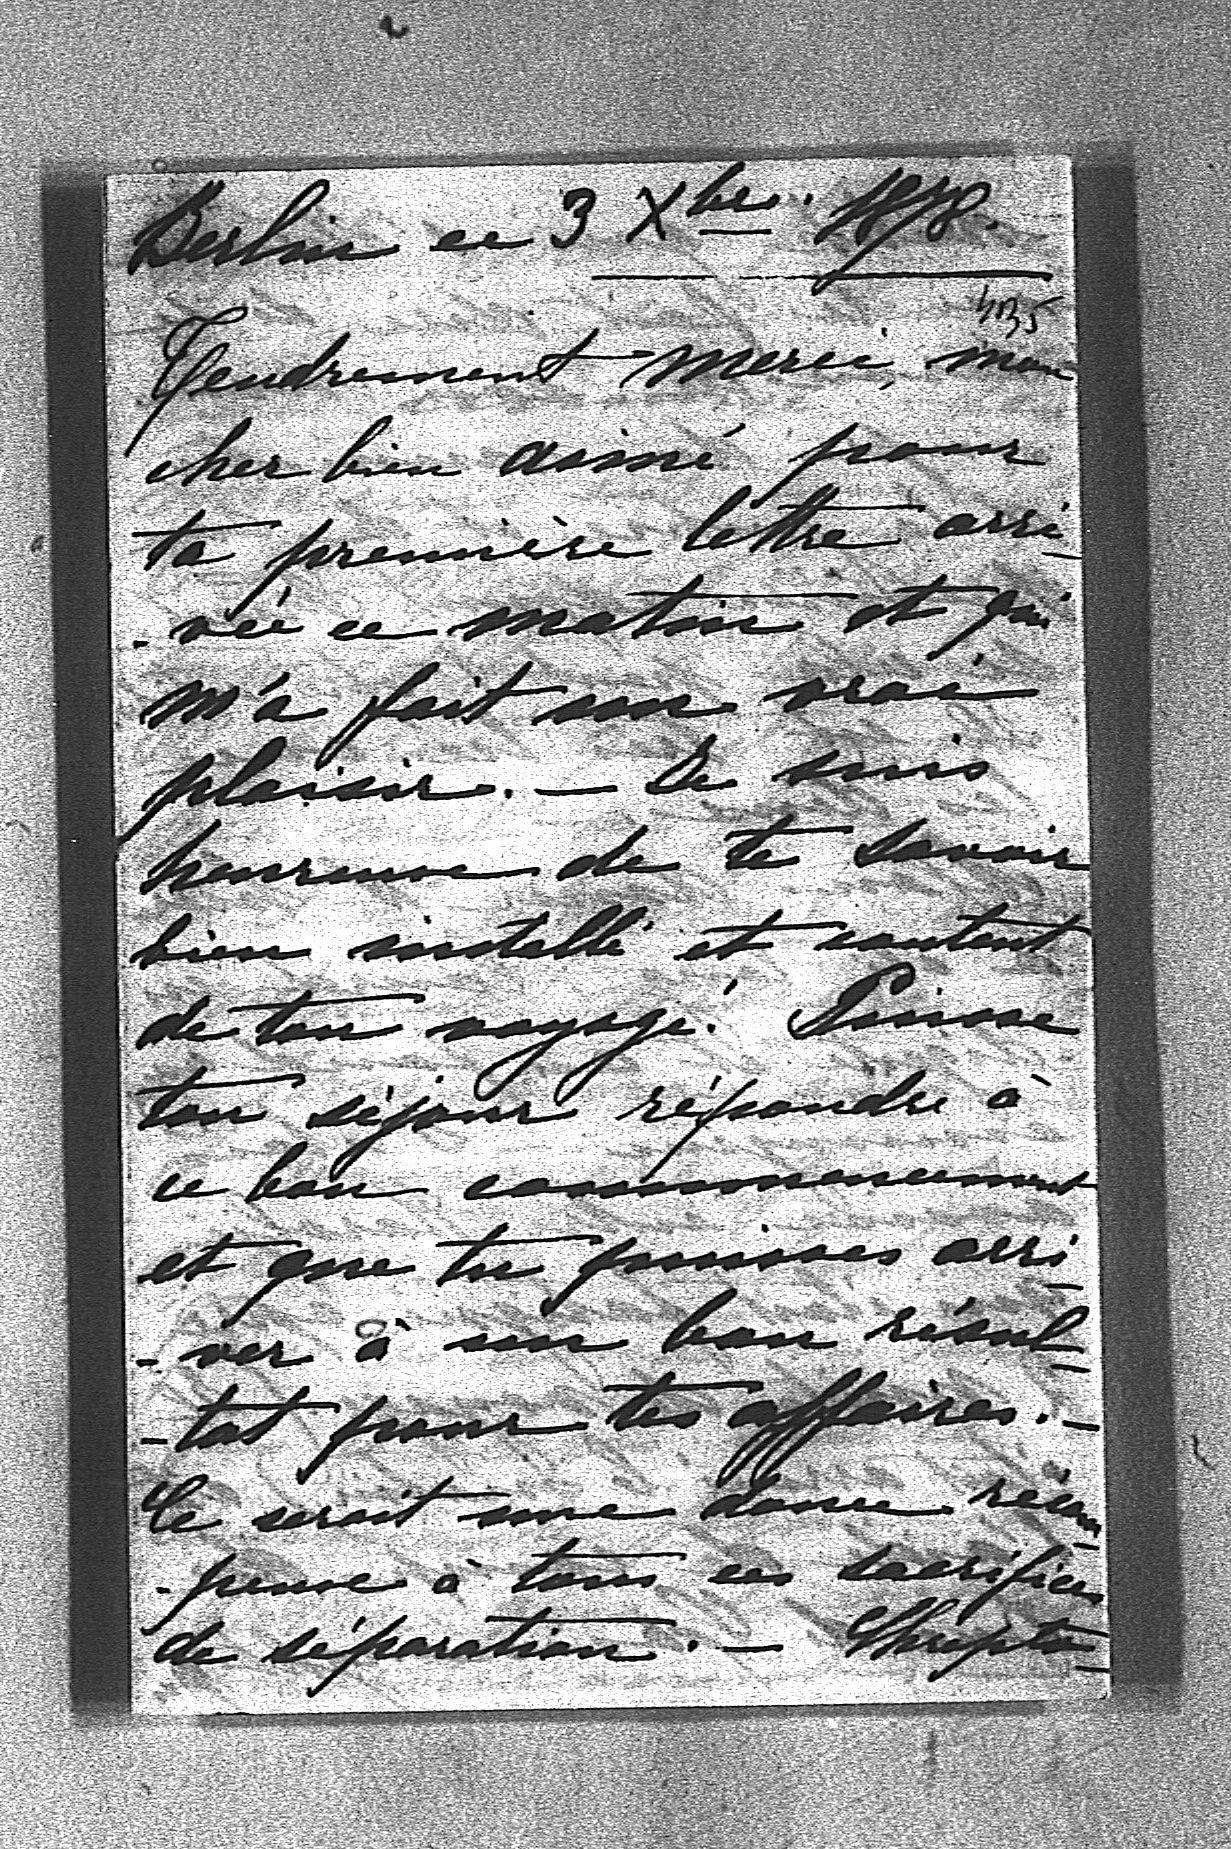 Berlin ce 3 Xbre. 1878.
Tendrement merci, mon
cher bien aimé pour
ta première lettre arri-
-vée ce matin et qui
m'a fait un vrai
plaisir. — Je suis
heureuse de te savoir
bien installé et content
de ton voyage! Puisse
ton séjour répondre à
ce bon commencement
et que tu puisses arri-
-ver à un bon résul-
-tat pour tes affaires. —
Ce serait une douce récom-
-pense à tous ces sacrifices
de séparation. —